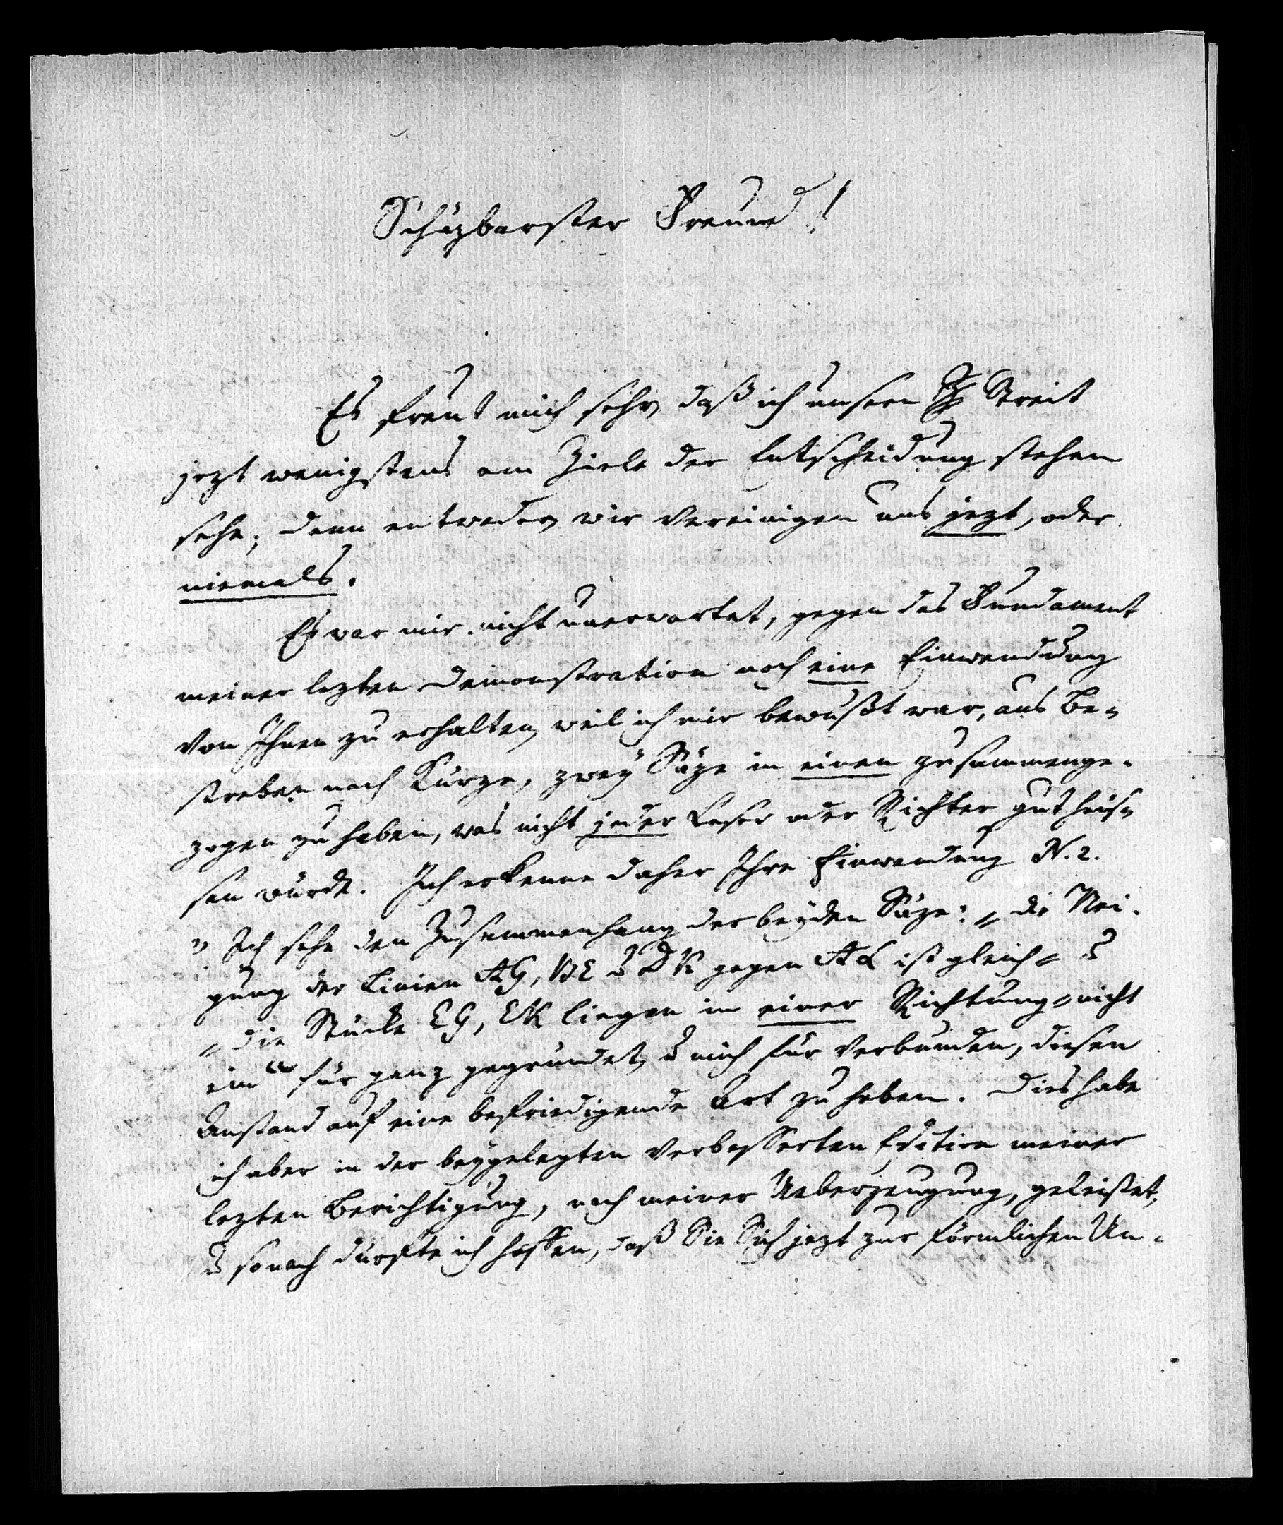 Schäzbarster Freund!
Es freut mich sehr, daß ich unsern Streit
jezt wenigstens am Ziele der Entscheidung stehen
sehe; denn entweder wir vereinigen uns jezt, oder
niemals.
Es war mir nicht unerwartet, gegen das Fundament
meiner lezten Demonstration noch eine Einwendung
von Ihnen zu erhalten, weil ich mir bewußt war, aus Be-
streben nach Kürze, zwey Säze in einen zusammenge-
zogen zu haben, was nicht jeder Leser oder Richter gut heis-
sen würde. Ich erkenne daher Ihre Einwendung N. 2.
" Ich sehe den Zusammenhang der beyden Säze: „ die Nei-
gung der Linien AG, BE & DK gegen AL ist gleich „ &
„ die Stücke EG, EK liegen in einer Richtung „ nicht
ein" für ganz gegründet, & mich für verbunden, diesen
Anstand auf eine befriedigende Art zu heben. Dies habe
ich aber in der beygelegten verbesserten Edition meiner
lezten Berichtigung, nach meiner Ueberzeugung, geleistet,
& sonach dürfte ich hoffen, daß Sie Sich jezt zur förmlichen Un-